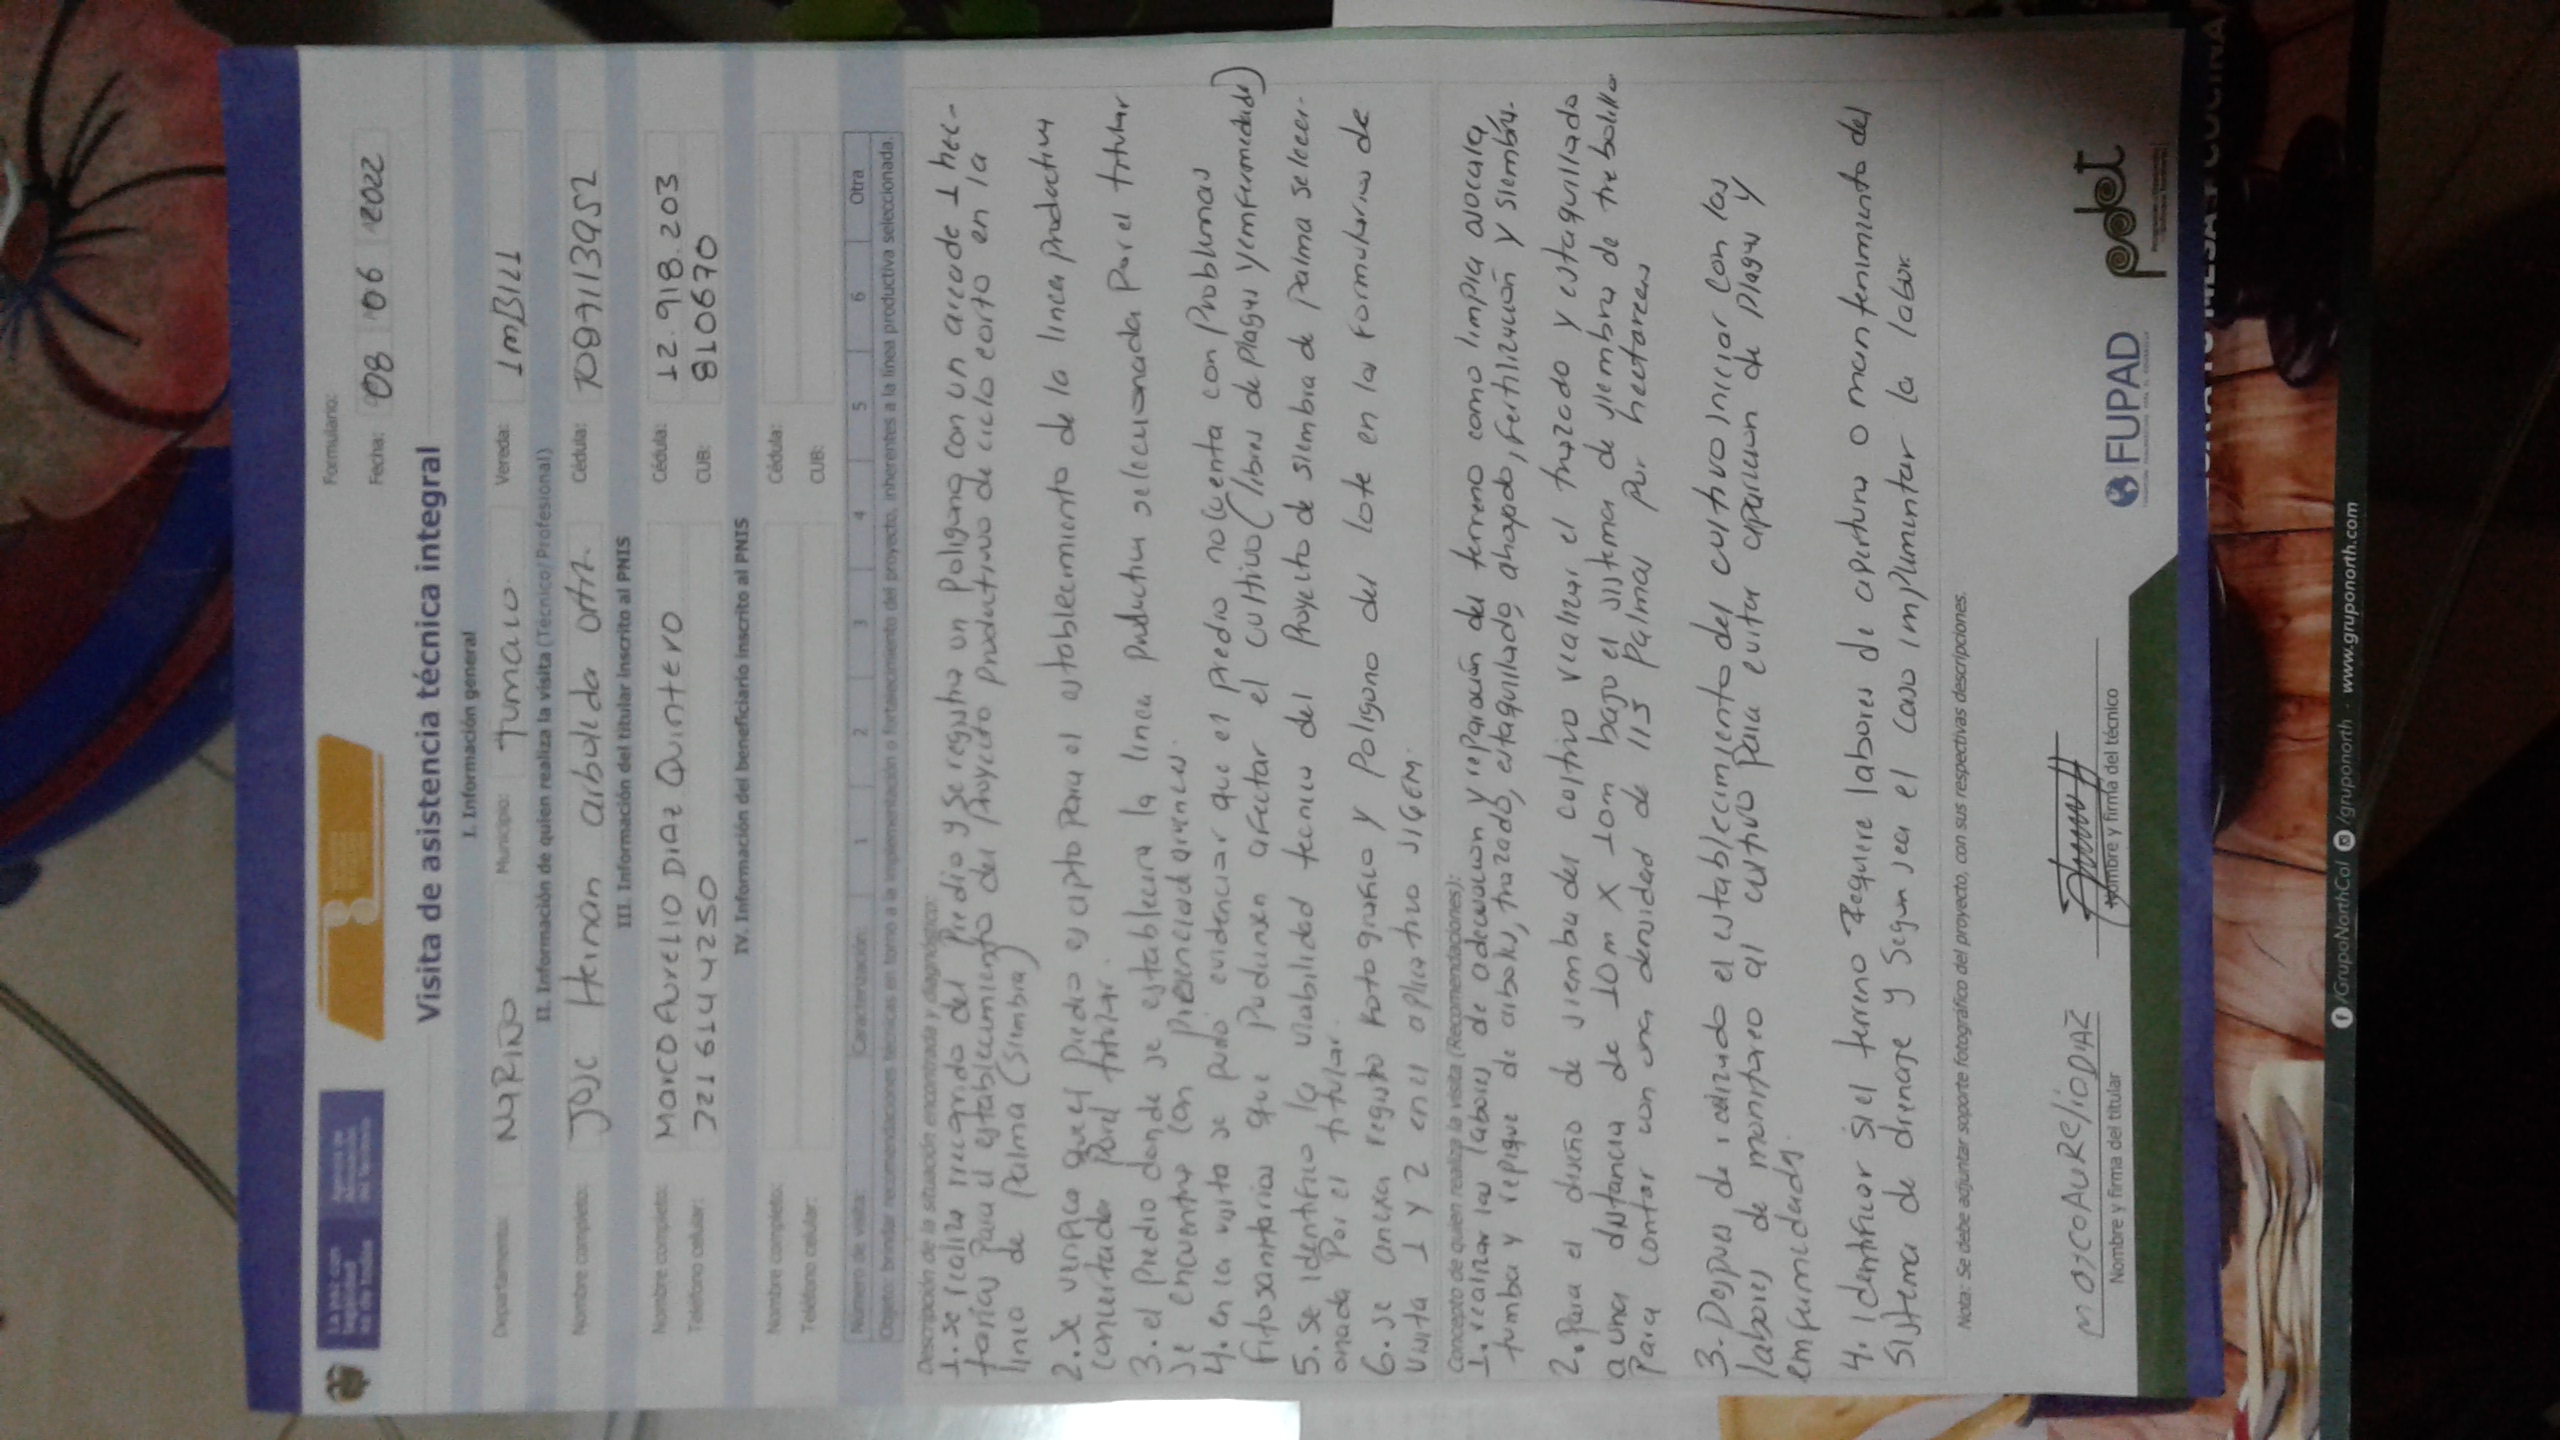 La paz con
legalidad
es de todos
Agencia de
Renovación
del Territorio
Formulario:
Fecha: 08 06 2022
Visita de asistencia técnica integral
I. Información general
Departamento: NARIÑO Municipio: Tumaco. Vereda: IMBILI
II. Información de quien realiza la visita (Técnico/Profesional)
Nombre completo: Jose Hernan arboleda orti. Cédula:
III. Información del titular inscrito al PNIS
Nombre completo: MARCO AURELIO DIAZ QUINTERO Cédula: 12.918.203
Teléfono celular: 3216144250 CUB: 810670
IV. Información del beneficiario inscrito al PNIS
Nombre completo: Cédula:
Teléfono celular: CUB:
Número de visita: Caracterización: 1 2 3 4 5 6 Otra
Objeto: brindar recomendaciones técnicas en torno a la implementación o fortalecimiento del proyecto, inherentes a la línea productiva seleccionada.
Descripción de la situación encontrada y diagnóstico:
1. se realizo rrecorrido del Predio y se registro un Poligono con un area de 1 hec-
tarias Para el establecimiento del Proyecto Productivo de ciclo corto en la
linia de Palma (siembra)
2. Se verifica que el Predio es apto Para el establecimiento de la linea Productiva
concertada Por el titular.
3. el Predio donde se establecera la linea Productiva seleccionada Por el titular
se encuentra con Presencia de arvences.
4. en la visita se pudo evidenciar que el Predio no cuenta con Problemas
Fitosanitarios que Puduxen afectar el cultivo (libres de Plagas y enfermedades)
5. se Identifico la viabilidad tecnica del Proyecto de siembra de Palma seleccr-
onada Por el titular.
6. se anexa registro Fotografico y Poligono del lote en los Formularios de
visita 1 y 2 en el aplicativo SIGEM.
Concepto de quien realiza la visita (Recomendaciones):
1. realizar las labores de adecuacion y reparación del terreno como limpia asocala,
tumba y repique de arboles, trazado, estaquillado, ahoyado, Fertilización y siembra.
2. Para el diseño de siembra del cultivo realizar el trazado y estaquillado
a una distancia de 10m X 10m bajo el sistema de siembra de tre bolillo
Para contar con una densidad de 115 Palmas Por hectareas
3. Despues de realizado el establecimiento del cultivo iniciar con las
labores de monitoreo al cultivo Para evitar aparicion de Plagas y
enfermedades.
4. Identificar si el terreno Requiere labores de apertura o mantenimiento del
sistema de drenaje y segun sea el caso implementar la labor.
Nota: Se debe adjuntar soporte fotográfico del proyecto, con sus respectivas descripciones.
MarCOAUReLioDIAZ
Nombre y firma del titular
Nombre y firma del técnico
FUPAD
pdet
/GrupoNorthCol /gruponorth - www.gruponorth.com